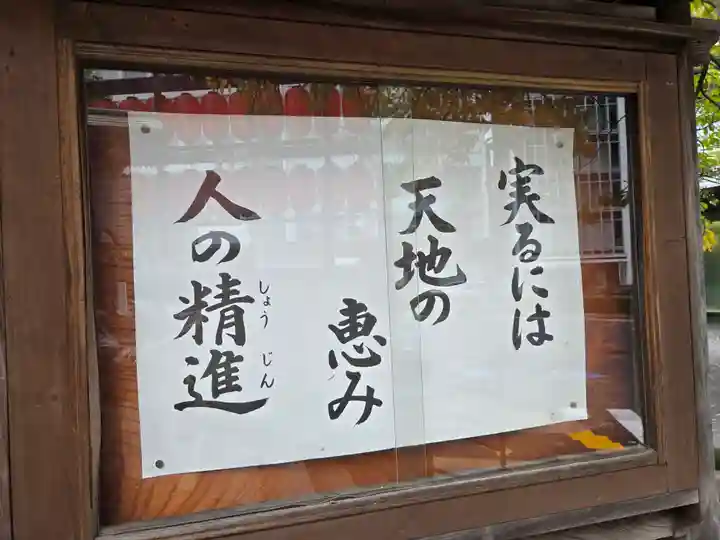 実るには
天地の
恵み
人の精進
しょう じん